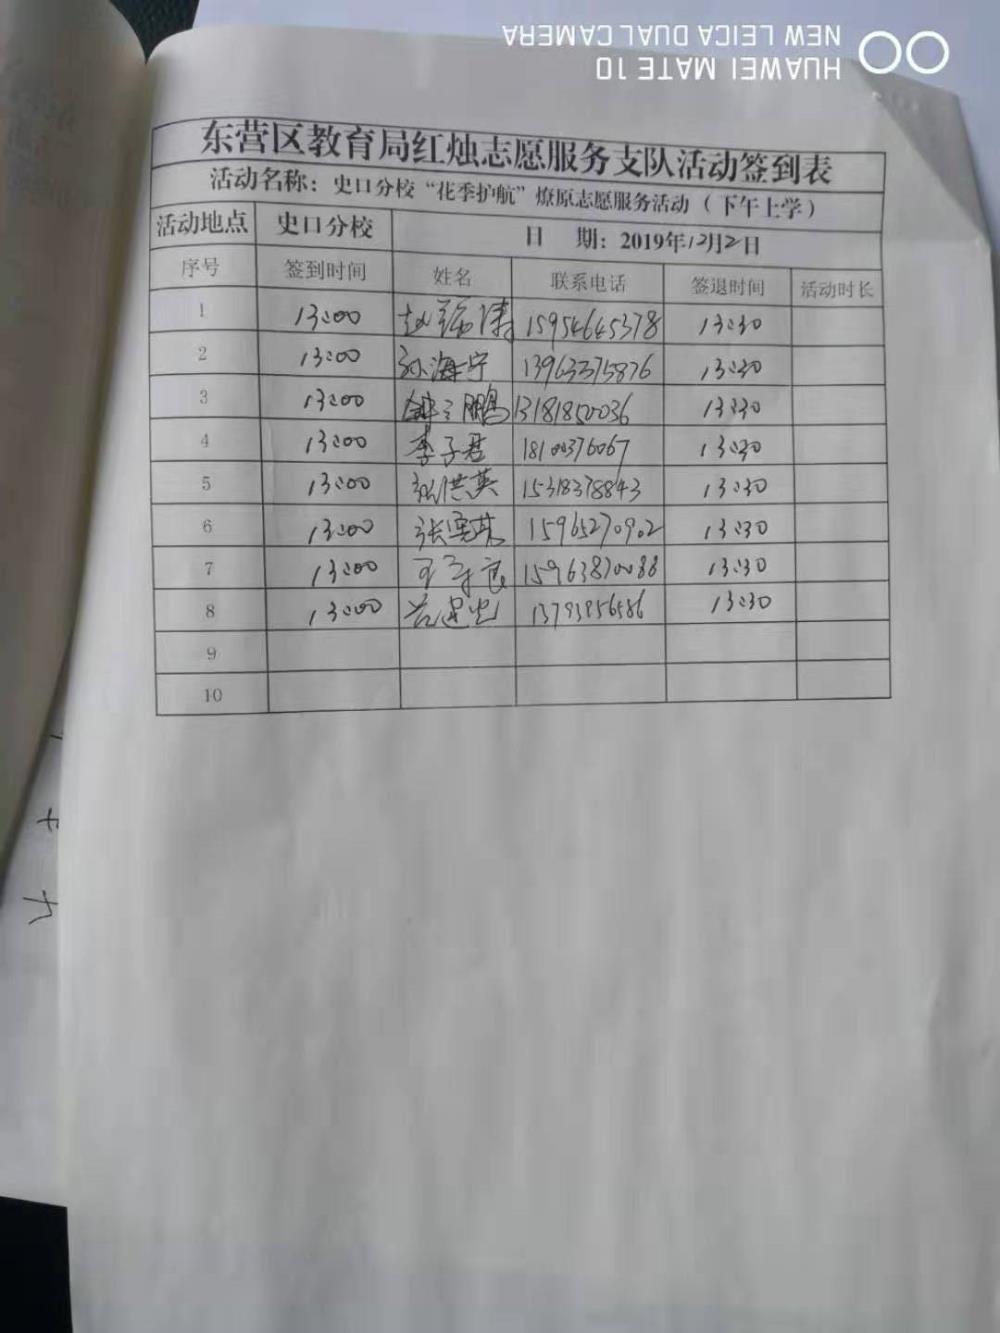 HUAWEI MATE 10
NEW LEICA DUAL CAMERA
东营区教育局红烛志愿服务支队活动签到表
活动名称：史口分校“花季护航”燎原志愿服务活动（下午上学）
活动地点 史口分校 日 期：2019年12月2日
序号 签到时间 姓名 联系电话 签退时间 活动时长
1 13:00 15954645378 13:30
2 13:00 孙海宁 13963375876 13:30
3 13:00 13181850036 13:30
4 13:00 李子君 18100376067 13:30
5 13:00 张洪英 15318378843 13:30
6 13:00 15965270902 13:30
7 13:00 15963870088 13:30
8 13:00 13793956586 13:30
9
10